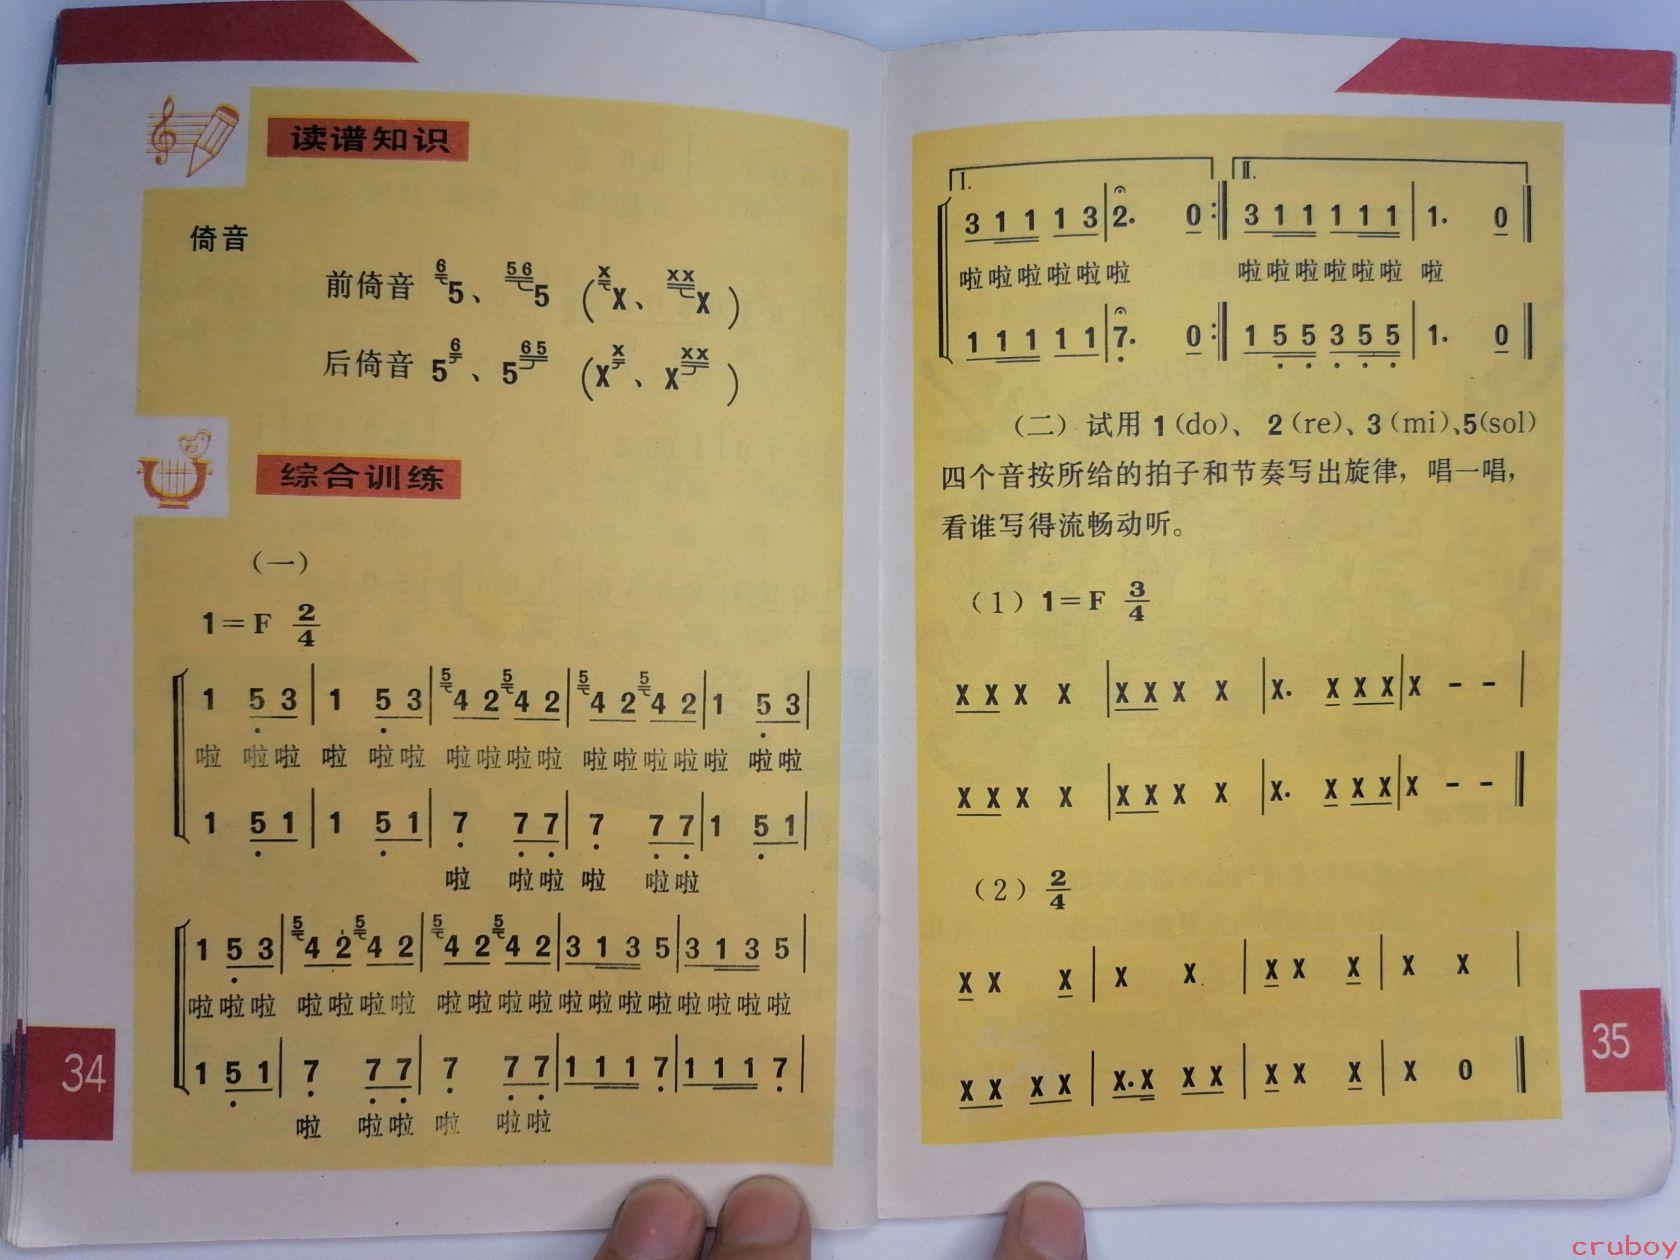 读谱知识
倚音
前倚音 6 5、 56 5 (X X、 XX X)
后倚音 5 6、 5 65 (X X、 X XX)
综合训练
(一)
1=F 2/4
1 5 3 | 1 5 3 | 5 4 2 5 4 2 | 5 4 2 5 4 2 | 1 5 3 |
啦 啦啦 啦 啦啦 啦啦啦啦 啦啦啦啦啦 啦啦
1 5 1 | 1 5 1 | 7 7 7 | 7 7 7 | 1 5 1 |
啦 啦啦 啦 啦啦
1 5 3 | 5 4 2 5 4 2 | 5 4 2 5 4 2 | 3 1 3 5 | 3 1 3 5 |
啦啦啦 啦啦啦啦 啦啦啦啦啦啦啦啦啦啦啦啦
1 5 1 | 7 7 7 | 7 7 7 | 1 1 1 7 | 1 1 1 7 |
啦 啦啦 啦 啦啦
34
I. II.
3 1 1 1 3 | 2. 0 :‖ 3 1 1 1 1 1 | 1. 0 ‖
啦啦啦啦啦啦 啦啦啦啦啦啦 啦
1 1 1 1 1 | 7. 0 :‖ 1 5 5 3 5 5 | 1. 0 ‖
(二) 试用 1(do)、 2(re)、3(mi)、5(sol)
四个音按所给的拍子和节奏写出旋律，唱一唱，
看谁写得流畅动听。
(1) 1=F 3/4
X X X X | X X X X | X. X X X | X - - |
X X X X | X X X X | X. X X X | X - - ‖
(2) 2/4
X X X | X X | X X X | X X |
X X X X | X. X X X | X X X | X 0 ‖
35
cruboy